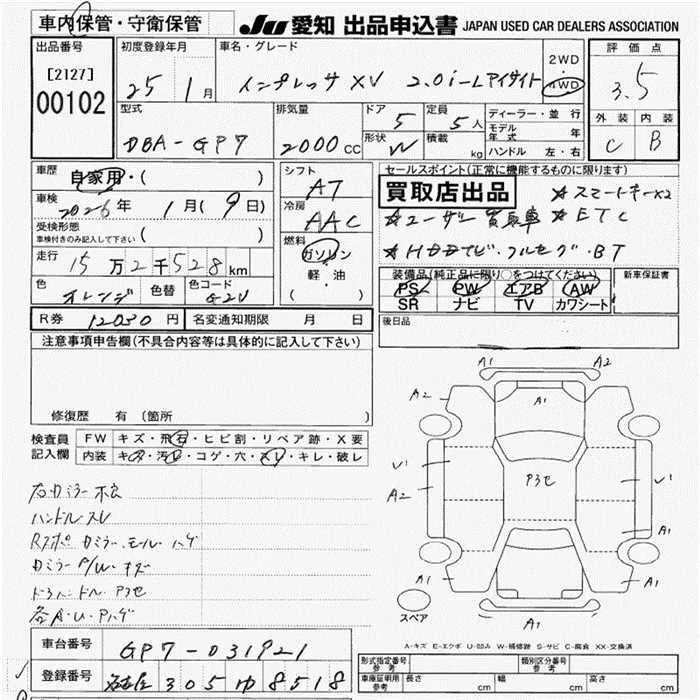 車内保管・守衛保管
JU 愛知 出品申込書 JAPAN USED CAR DEALERS ASSOCIATION
出品番号
[2127]
00102
初度登録年月
25 1月
車名・グレード
インプレッサ XV 2.0i-Lアイサイト
2WD
・
4WD
評価点
3.5
外装 内装
C B
型式
DBA-GP7
排気量
2000 CC
ドア 5
形状 W
定員 5人
積載 kg
ディーラー・並行
モデル年式 年
ハンドル 左・右
車歴
自家用・( )
車検
2026年 1月(9日)
受検形態
車検付きのみ記入して下さい ( )
走行
15万2千528km
色 オレンジ
色替
色コード G2U
シフト
AT
冷房
AAC
燃料
ガソリン
軽・油
( )
セールスポイント(正常に機能するものに限ります)
買取店出品
★スマートキーX2
★ユーザー買取車 ★ETC
★HDDナビ・フルセグ・BT
装備品(純正品に限り○をつけてください)
PS PW エアB AW
SR ナビ TV カワシート
新車保証書
後日品
R券 12030円
名変通知期限 月 日
注意事項申告欄(不具合内容等は具体的に記入して下さい)
修復歴 有 (箇所 )
検査員記入欄
FW キズ・飛石・ヒビ割・リペア跡・X要
内装 キズ・汚レ・コゲ・穴・スレ・キレ・破レ
ハンドルスレ
カミラーP/W キズ
ドアハンドル P3セ
各A・U・Pハゲ
A1 A2
A2 A1
U1 P3セ U1
A2
A1
A1 A1
A1
スペア
A-キズ E-エクボ U-凹み W-補修跡 S-サビ C-腐食 XX-交換済
車台番号
GP7-031921
登録番号
305 ゆ 8518
型式指定番号 参考
類別区分番号 参考
車庫証明用 参考 長さ cm 幅 cm 高さ cm